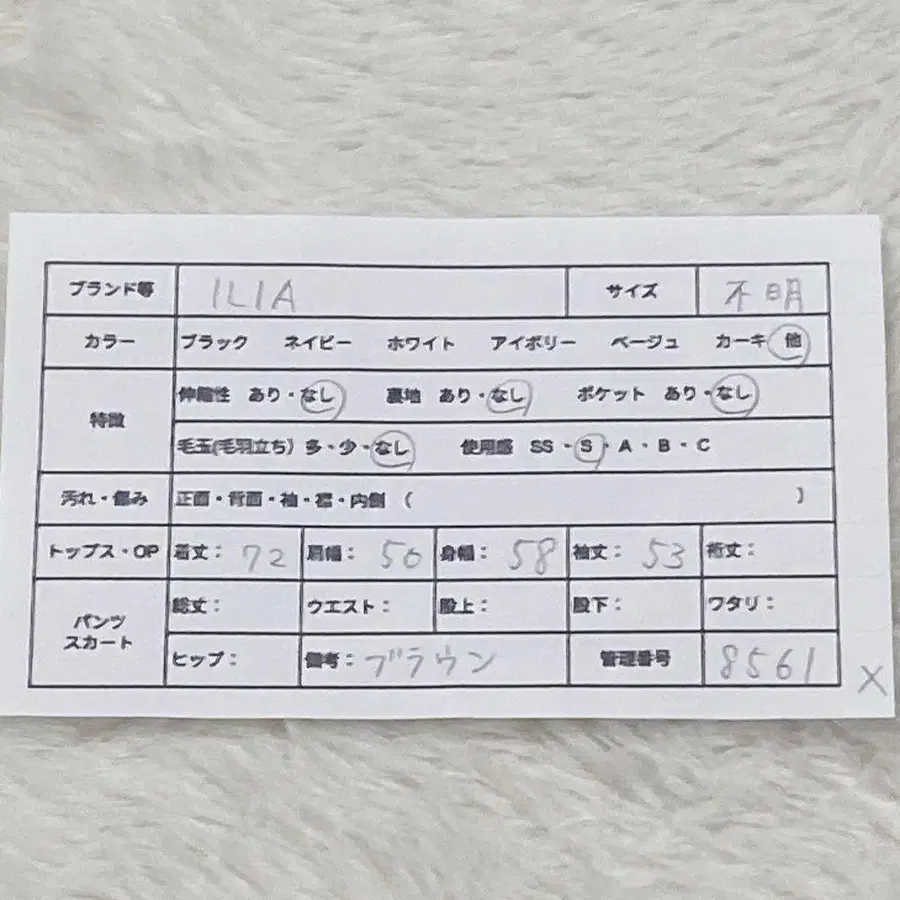 ブランド等 ILIA サイズ 不明
カラー ブラック ネイビー ホワイト アイボリー ベージュ カーキ 他
特徴 伸縮性 あり・なし 裏地 あり・なし ポケット あり・なし
毛玉(毛羽立ち) 多・少・なし 使用感 SS・S・A・B・C
汚れ・傷み 正面・背面・袖・襟・内側 ( )
トップス・OP 着丈: 72 肩幅: 50 身幅: 58 袖丈: 53 裄丈:
パンツ スカート 総丈: ウエスト: 股上: 股下: ワタリ:
ヒップ: 備考: ブラウン 管理番号 8561 X